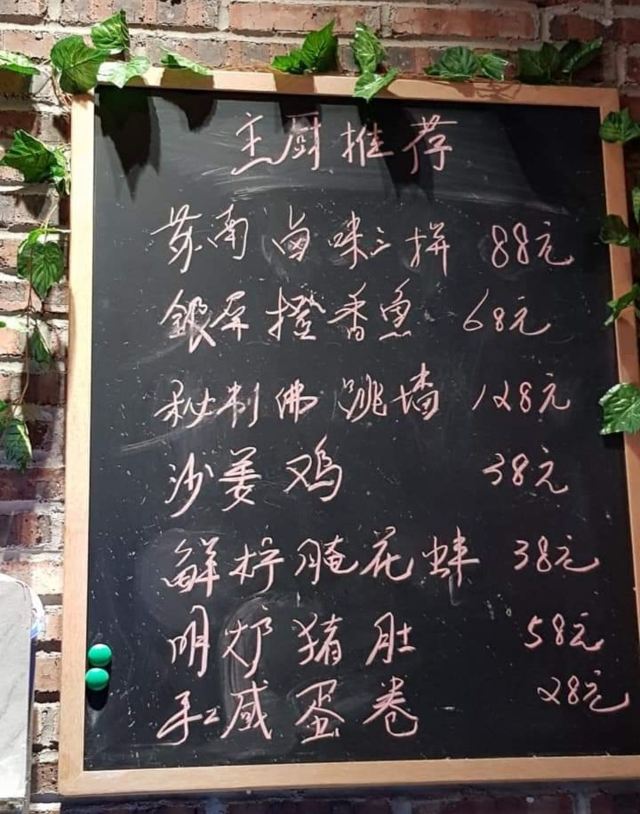 主厨推荐
苏南卤味三拼 88元
银屏橙香鱼 68元
秘制佛跳墙 128元
沙姜鸡 38元
鲜柠腌花蚌 38元
明炉猪肚 58元
手工咸蛋卷 28元